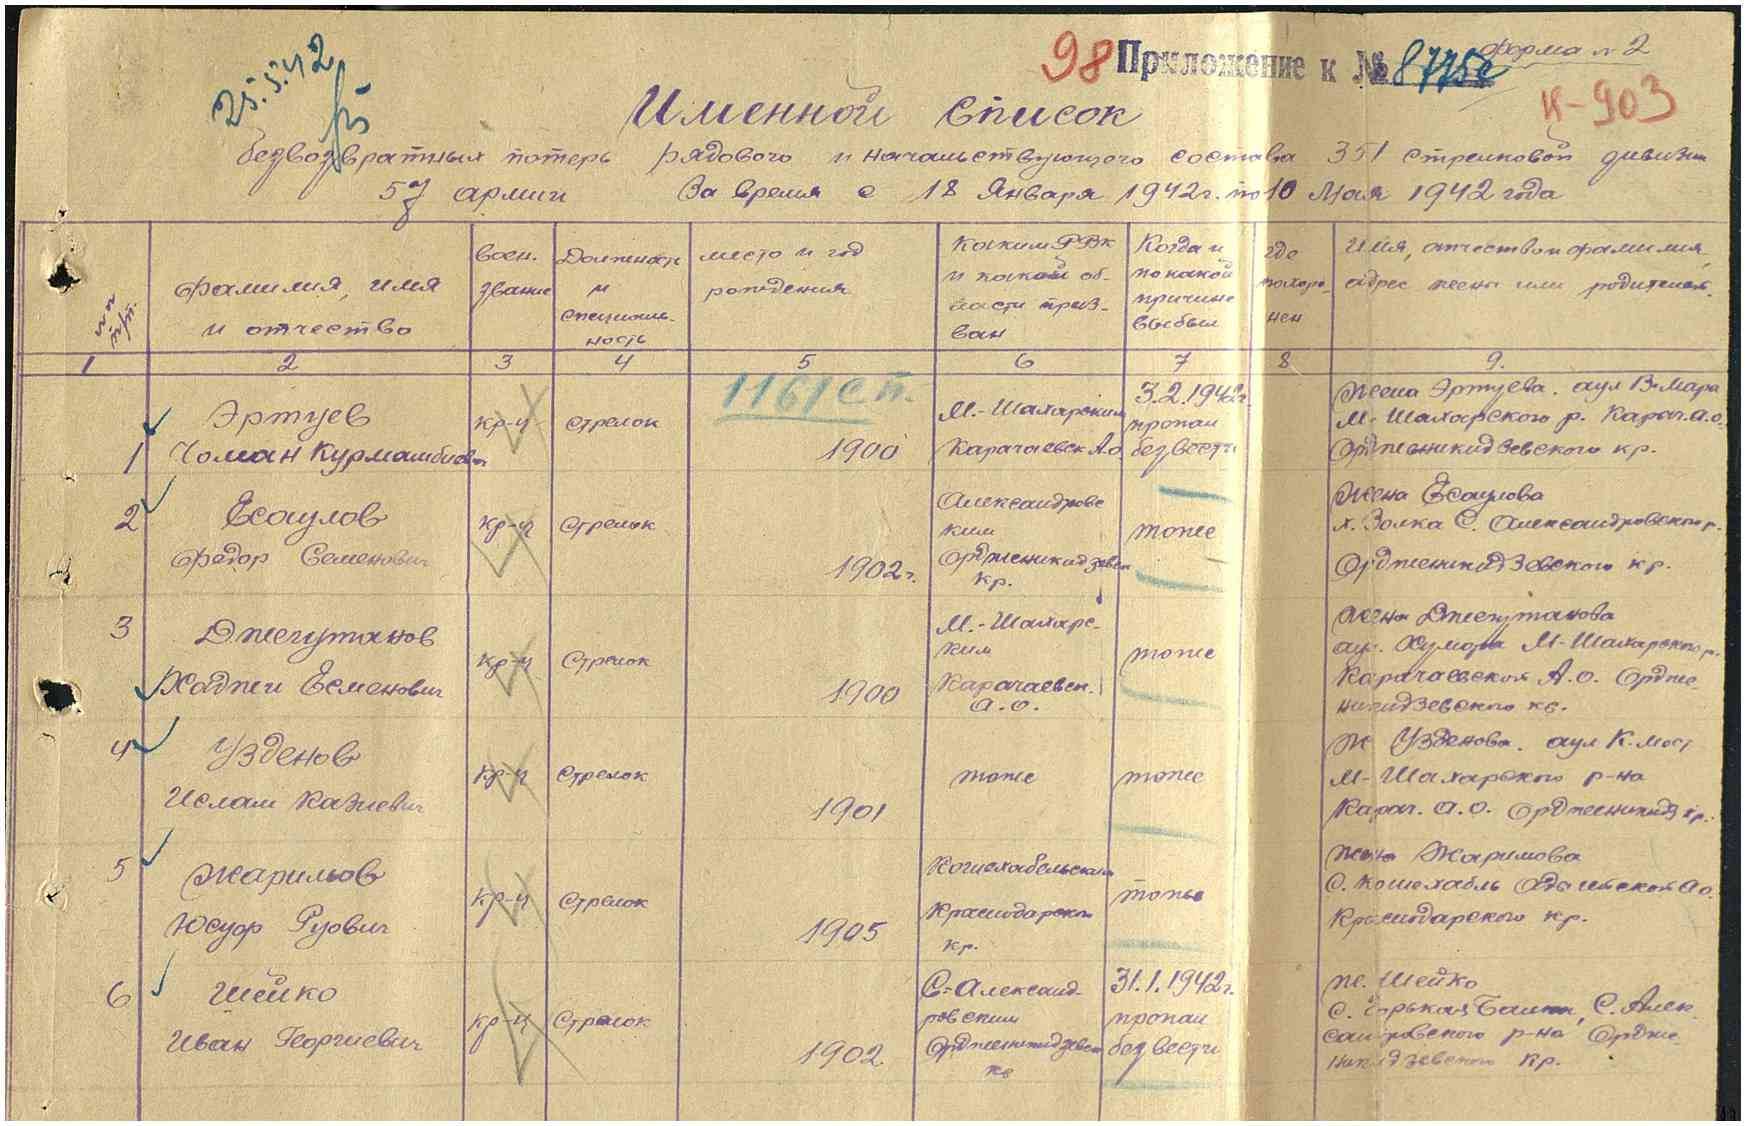 25.5.42
98 Приложение к № 8775с
форма №2
К-903
Именной список
безвозвратных потерь рядового и начальствующего состава 351 стрелковой дивизии
57 армии За время с 18 Января 1942г. по 10 Мая 1942 года
Фамилия, имя и отчество
воен. звание
Должность и специаль-ность
место и год рождения
Каким РВК и какой об-ласти приз-ван
Когда и по какой причине выбыл
где похоро-нен
Имя, отчество и фамилия, адрес жены или родителей.
1 2 3 4 5 6 7 8 9.
1161 сп.
1 Эртуев
Чоман Курмамбиевич
кр-ц
Стрелок
1900
М.-Шахарским
Карачаевск А.о
3.2.1942г.
пропал
без вести
жена Эртуева. аул В-Мара
М-Шахарского р. Карач. а.о.
Орджоникидзевского кр.
2 Есаулов
Федор Семенович
кр-ц
Стрелок
1902г.
Александровс
ким
Орджоникидзевск
кр.
тоже
жена Есаулова
х. Золка С. Александровского р.
Орджоникидзевского кр.
3 Джегутанов
Хаджи Есменович
кр-ц
Стрелок
1900
М.-Шахарс-
ким
Карачаевск.
а.о.
тоже
жена Джегутанова
аул. Хумара М-Шахарского р.
Карачаевской А.о. Ордже-
никидзевского кр.
4 Узденов
Ислам Казиевич
кр-ц
Стрелок
1901
тоже
тоже
ж Узденова. аул К. Мост
М-Шахарского р-на
Карач. а.о. Орджоникидз кр.
5 Жарильов
Юсуф
кр-ц
Стрелок
1905
Кошехабельским
Краснодарского
кр.
тоже
жена Жаримова
с. Кошехабль Адыгейской А.о.
Краснодарского кр.
6 Шейко
Иван Георгиевич
кр-ц
Стрелок
1902
С-Александ-
ровским
Орджоникидзевск
кр
31.1.1942г.
пропал
без вести
ж. Шейко
с. Горькая Балка, С. Алек-
сандровского р-на Ордже-
никидзевского кр.